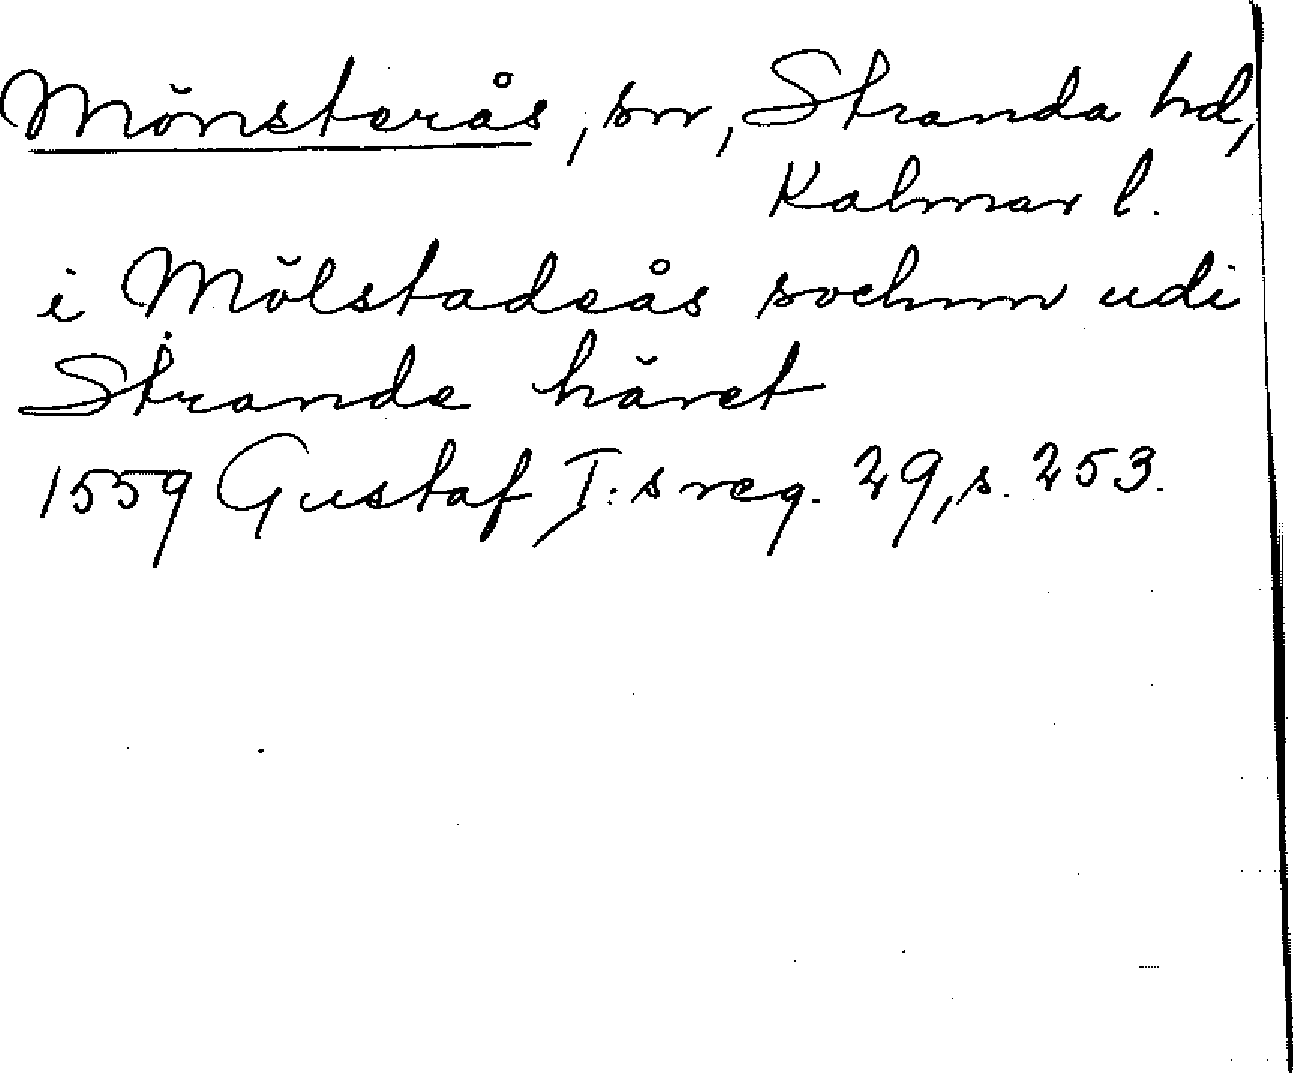 Mönsterås, sn, Stranda hd,
Kalmar l.
i Mölstadeås sochnn udi
Strande häret
1559 Gustaf I:s reg. 29, s. 253.